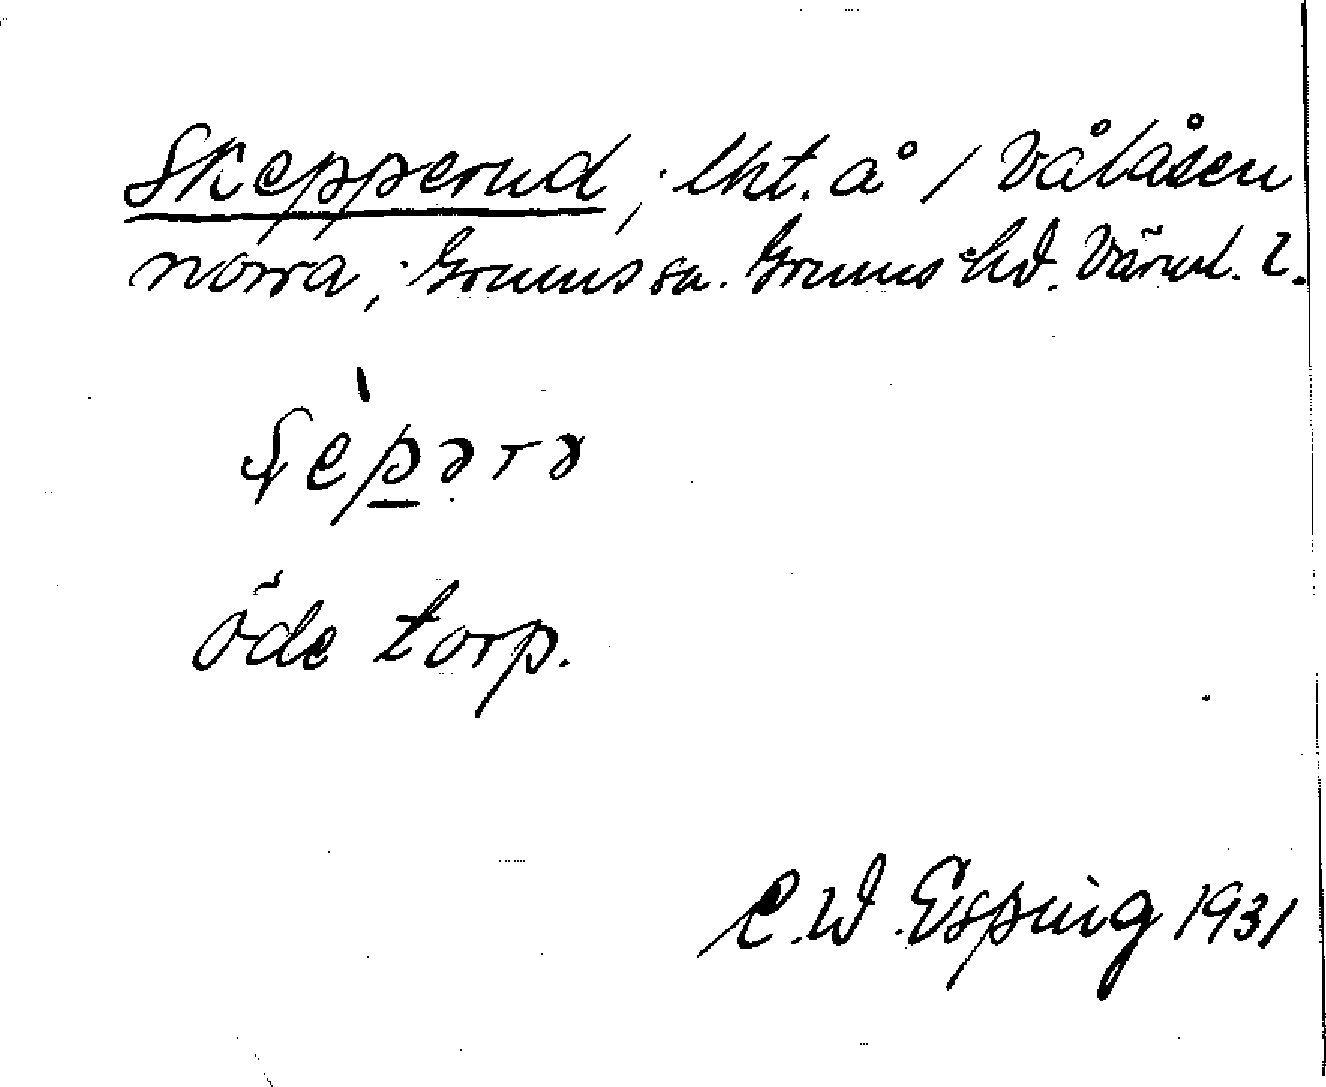 Skepperud, lht. å / Vålåsen
norra, Grums sn. Grums hd. Värml. l.
öde torp.
C. W. Esping 1931